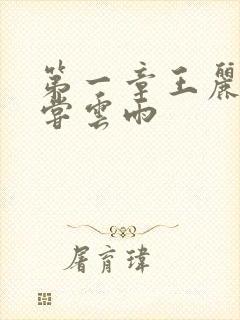 第一章王麗
嘗雲雨
屠育瑋